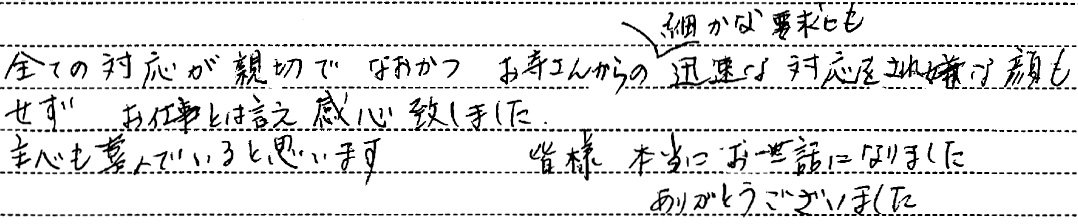 細かな要求にも
全ての対応が親切で なおかつ お寺さんからの 迅速な対応をされ嫌な顔も
せず お仕事とは言え 感心致しました.
主人も喜んでいると思います 皆様 本当にお世話になりました
ありがとうございました